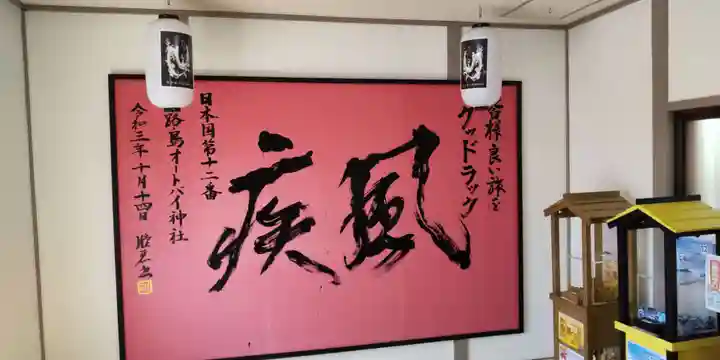 皆様良い旅を
グッドラック
疾風
日本国第十二番
淡路島オートバイ神社
令和三年十月十四日